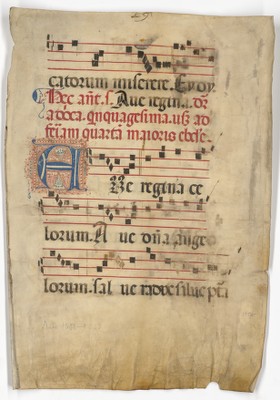 catorum miserere. Eyoy
Hec añe. s. Aue regina. dr̄
a dōca. qnquagesima. usq̄ ad
feriam quartā maioris ebdē.
A Ue regina ce
lorum. A ue dña ange
lorum. sal ue radix salue pta